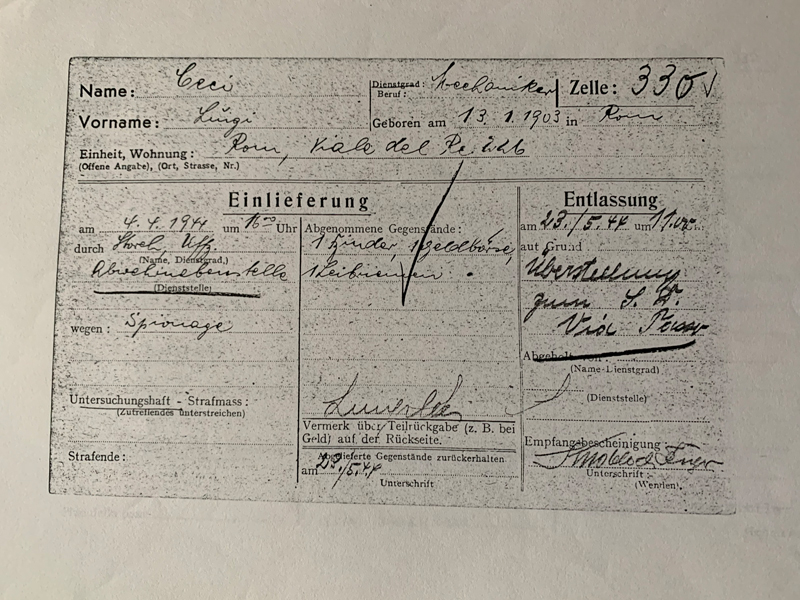 Name: Ceci
Dienstgrad:
Beruf: Mechaniker
Zelle: 330
Vorname: Luigi
Geboren am 13. 1. 1903 in Rom
Einheit, Wohnung: Rom, Viale del Re
(Offene Angabe), (Ort, Strasse, Nr.)
Einlieferung
am 4. 4. 1944 um 16 00 Uhr
durch Uffz.
(Name, Dienstgrad,)
Abwehrnebenstelle
(Dienststelle)
wegen: Spionage
Untersuchungshaft - Strafmass:
(Zutreffendes unterstreichen)
Strafende:
Abgenommene Gegenstände:
1 Geldbörse,
1 Leibriemen.
Vermerk über Teilrückgabe (z. B. bei
Geld) auf der Rückseite.
Abgelieferte Gegenstände zurückerhalten
am 23./5.44
Unterschrift
Entlassung
am 23./5.44 um 11.00
auf Grund
Überstellung
zum S. D.
Via Tasso
Abgeholt von:
(Name-Lienstgrad)
(Dienststelle)
Empfangsbescheinigung
Unterschrift
(Wenden)